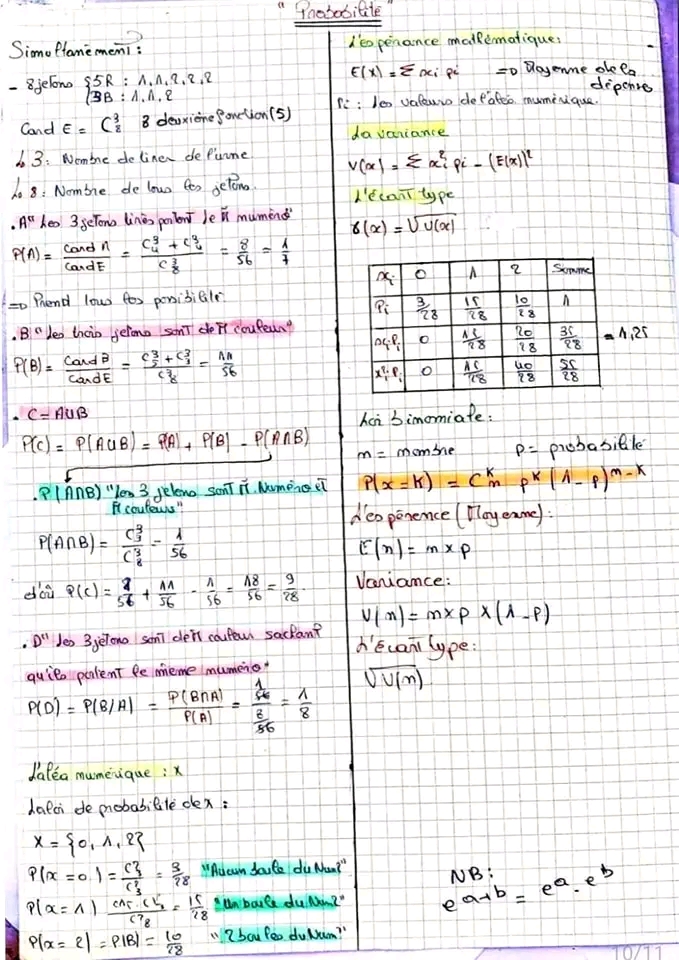 "Probabilité"
Simultanément :
- 8 jetons { 5R : 1, 1, 2, 2, 2
3B : 1, 1, 2
Card E = C³₈ 8 deuxième fonction (5)
↳ 3 : Nombre de tirer de l'urne.
↳ 8 : Nombre de tous les jetons.
. A" Les 3 jetons tirés portent le m̄ numéro"
P(A) = Card A / Card E = C³₄ + C³₄ / C³₈ = 8/56 = 1/7
=> Prend tous les possibilité.
. B "les trois jetons sont de m̄ couleur"
P(B) = Card B / Card E = C³₅ + C³₃ / C³₈ = 11/56
. C = A∪B
P(C) = P(A∪B) = P(A) + P(B) - P(A∩B)
. P(A∩B) "Les 3 jetons sont m̄ Numéro et
m̄ couleurs"
P(A∩B) = C³₃ / C³₈ = 1/56
d'où P(C) = 8/56 + 11/56 - 1/56 = 18/56 = 9/28.
. D" les 3 jetons sont de m̄ couleur sachant
qu'ils portent le même numéro"
P(D) = P(B/A) = P(B∩A) / P(A) = 1/56 / 8/56 = 1/8
L'aléa numérique : X
La loi de probabilité de x :
X = {0, 1, 2}
P(x = 0) = = 3/28 "Aucun boule du Num2"
P(x = 1) = 15/28 "Un boule du Num2"
P(x = 2) = P(B) = 10/28 "2 boules du Num2"
L'espérance mathématique:
E(x) = Σ xi pi => Moyenne de la
dépense
Pi : les valeurs de l'aléa numérique.
La variance
V(x) = Σ x²i pi - (E(x))²
L'écart type
δ(x) = √V(x)
xi 0 1 2 Somme
Pi 3/28 15/28 10/28 1
xi.Pi 0 15/28 20/28 35/28 = 1,25
x²i.Pi 0 15/28 40/28 55/28
Loi binomiale :
m = nombre p = probabilité
P(x = k) = Cᵏₘ pᵏ (1 - p)ᵐ⁻ᵏ
L'espérence (Moyenne) :
E(n) = m x p
Variance :
V(n) = m x p x (1 - p)
L'Écart type :
√V(n)
NB :
eᵃ⁺ᵇ = eᵃ . eᵇ
10/11